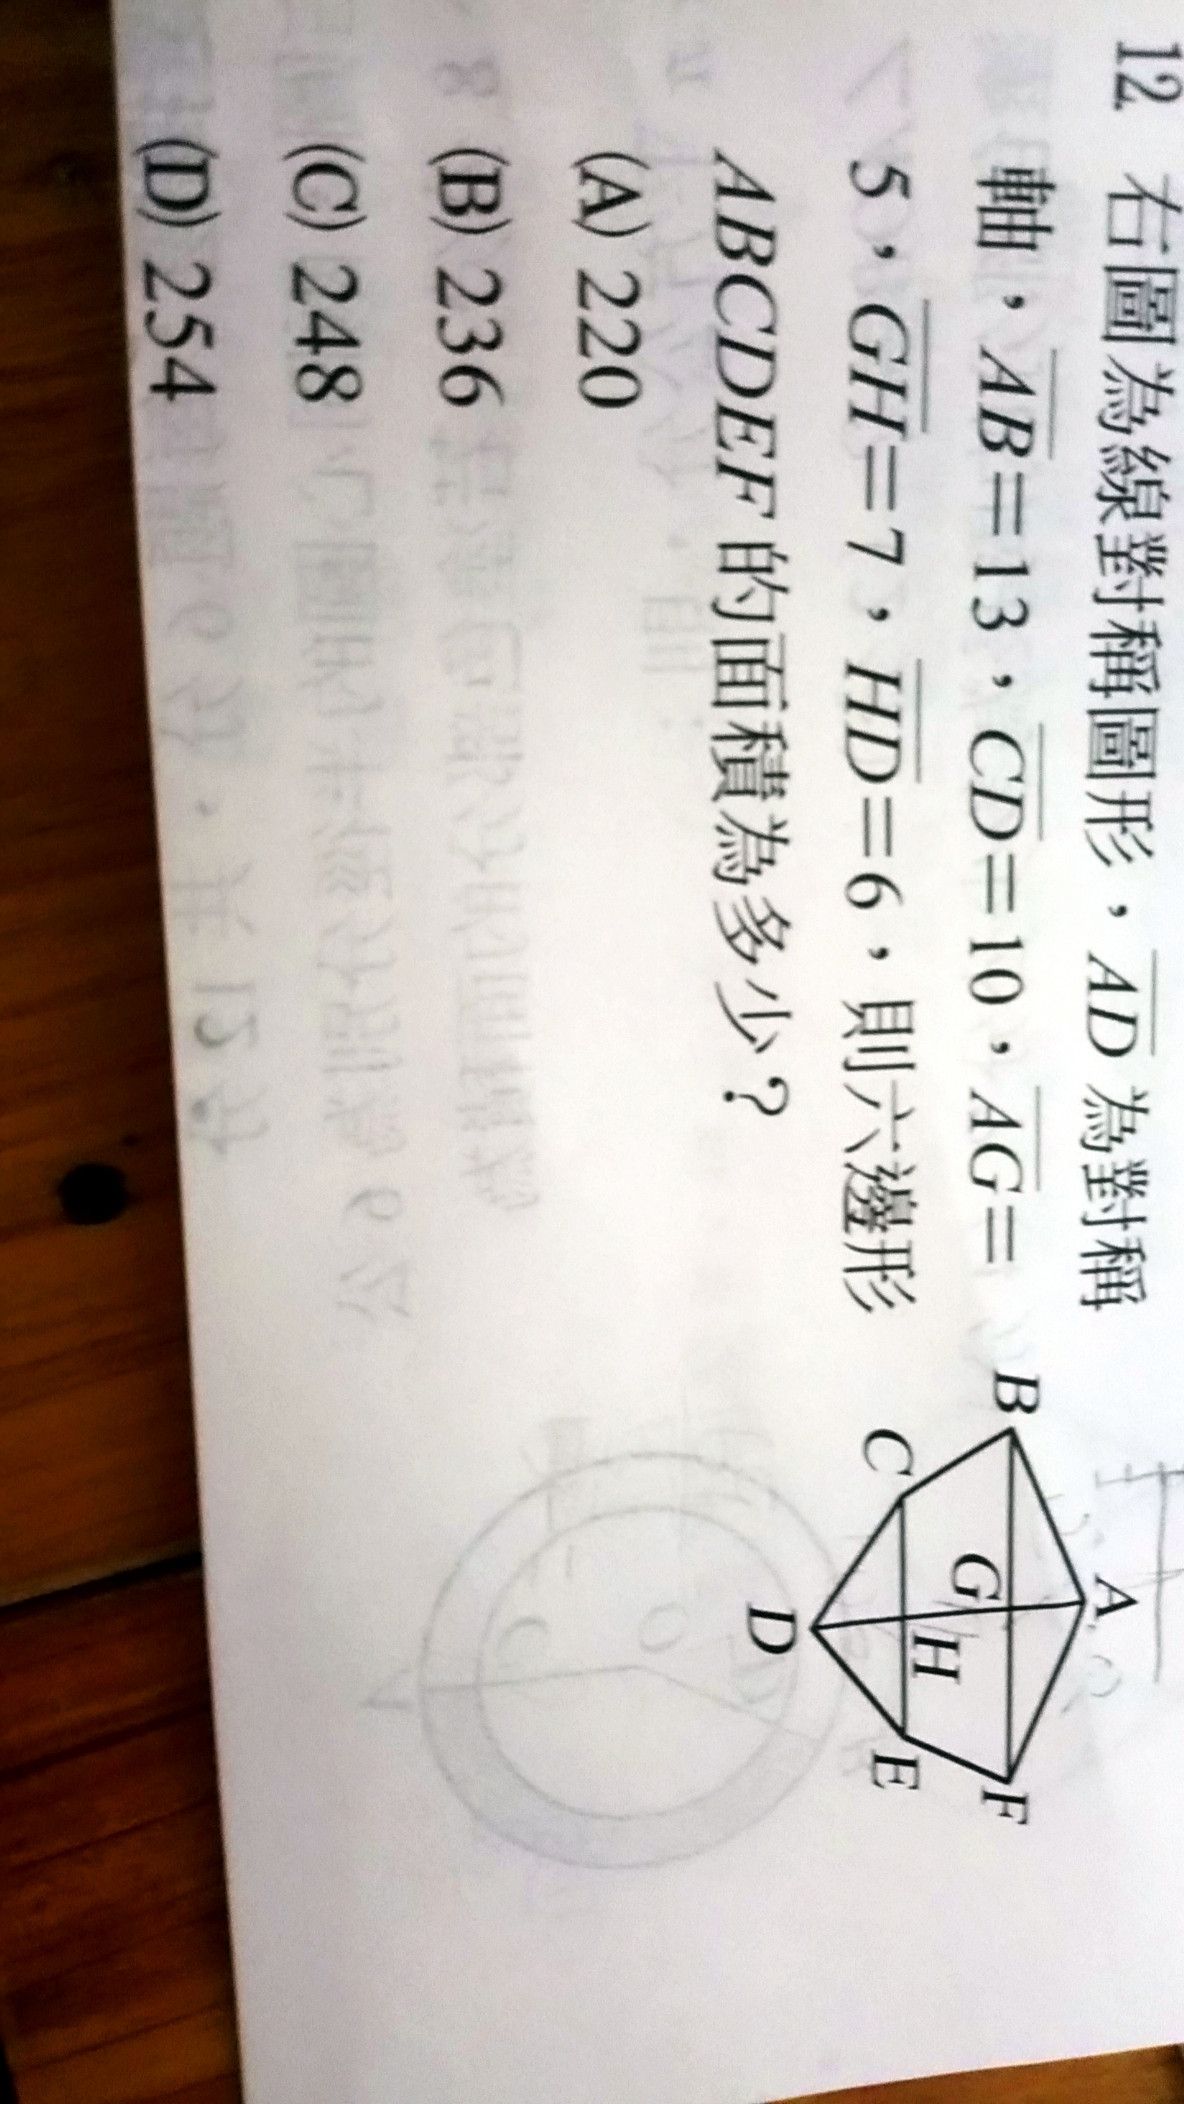 12 右圖為線對稱圖形，AD 為對稱
軸，AB＝13，CD＝10，AG＝
5，GH＝7，HD＝6，則六邊形
ABCDEF 的面積為多少？
(A) 220
(B) 236
(C) 248
(D) 254
A
B
G
F
C
H
E
D